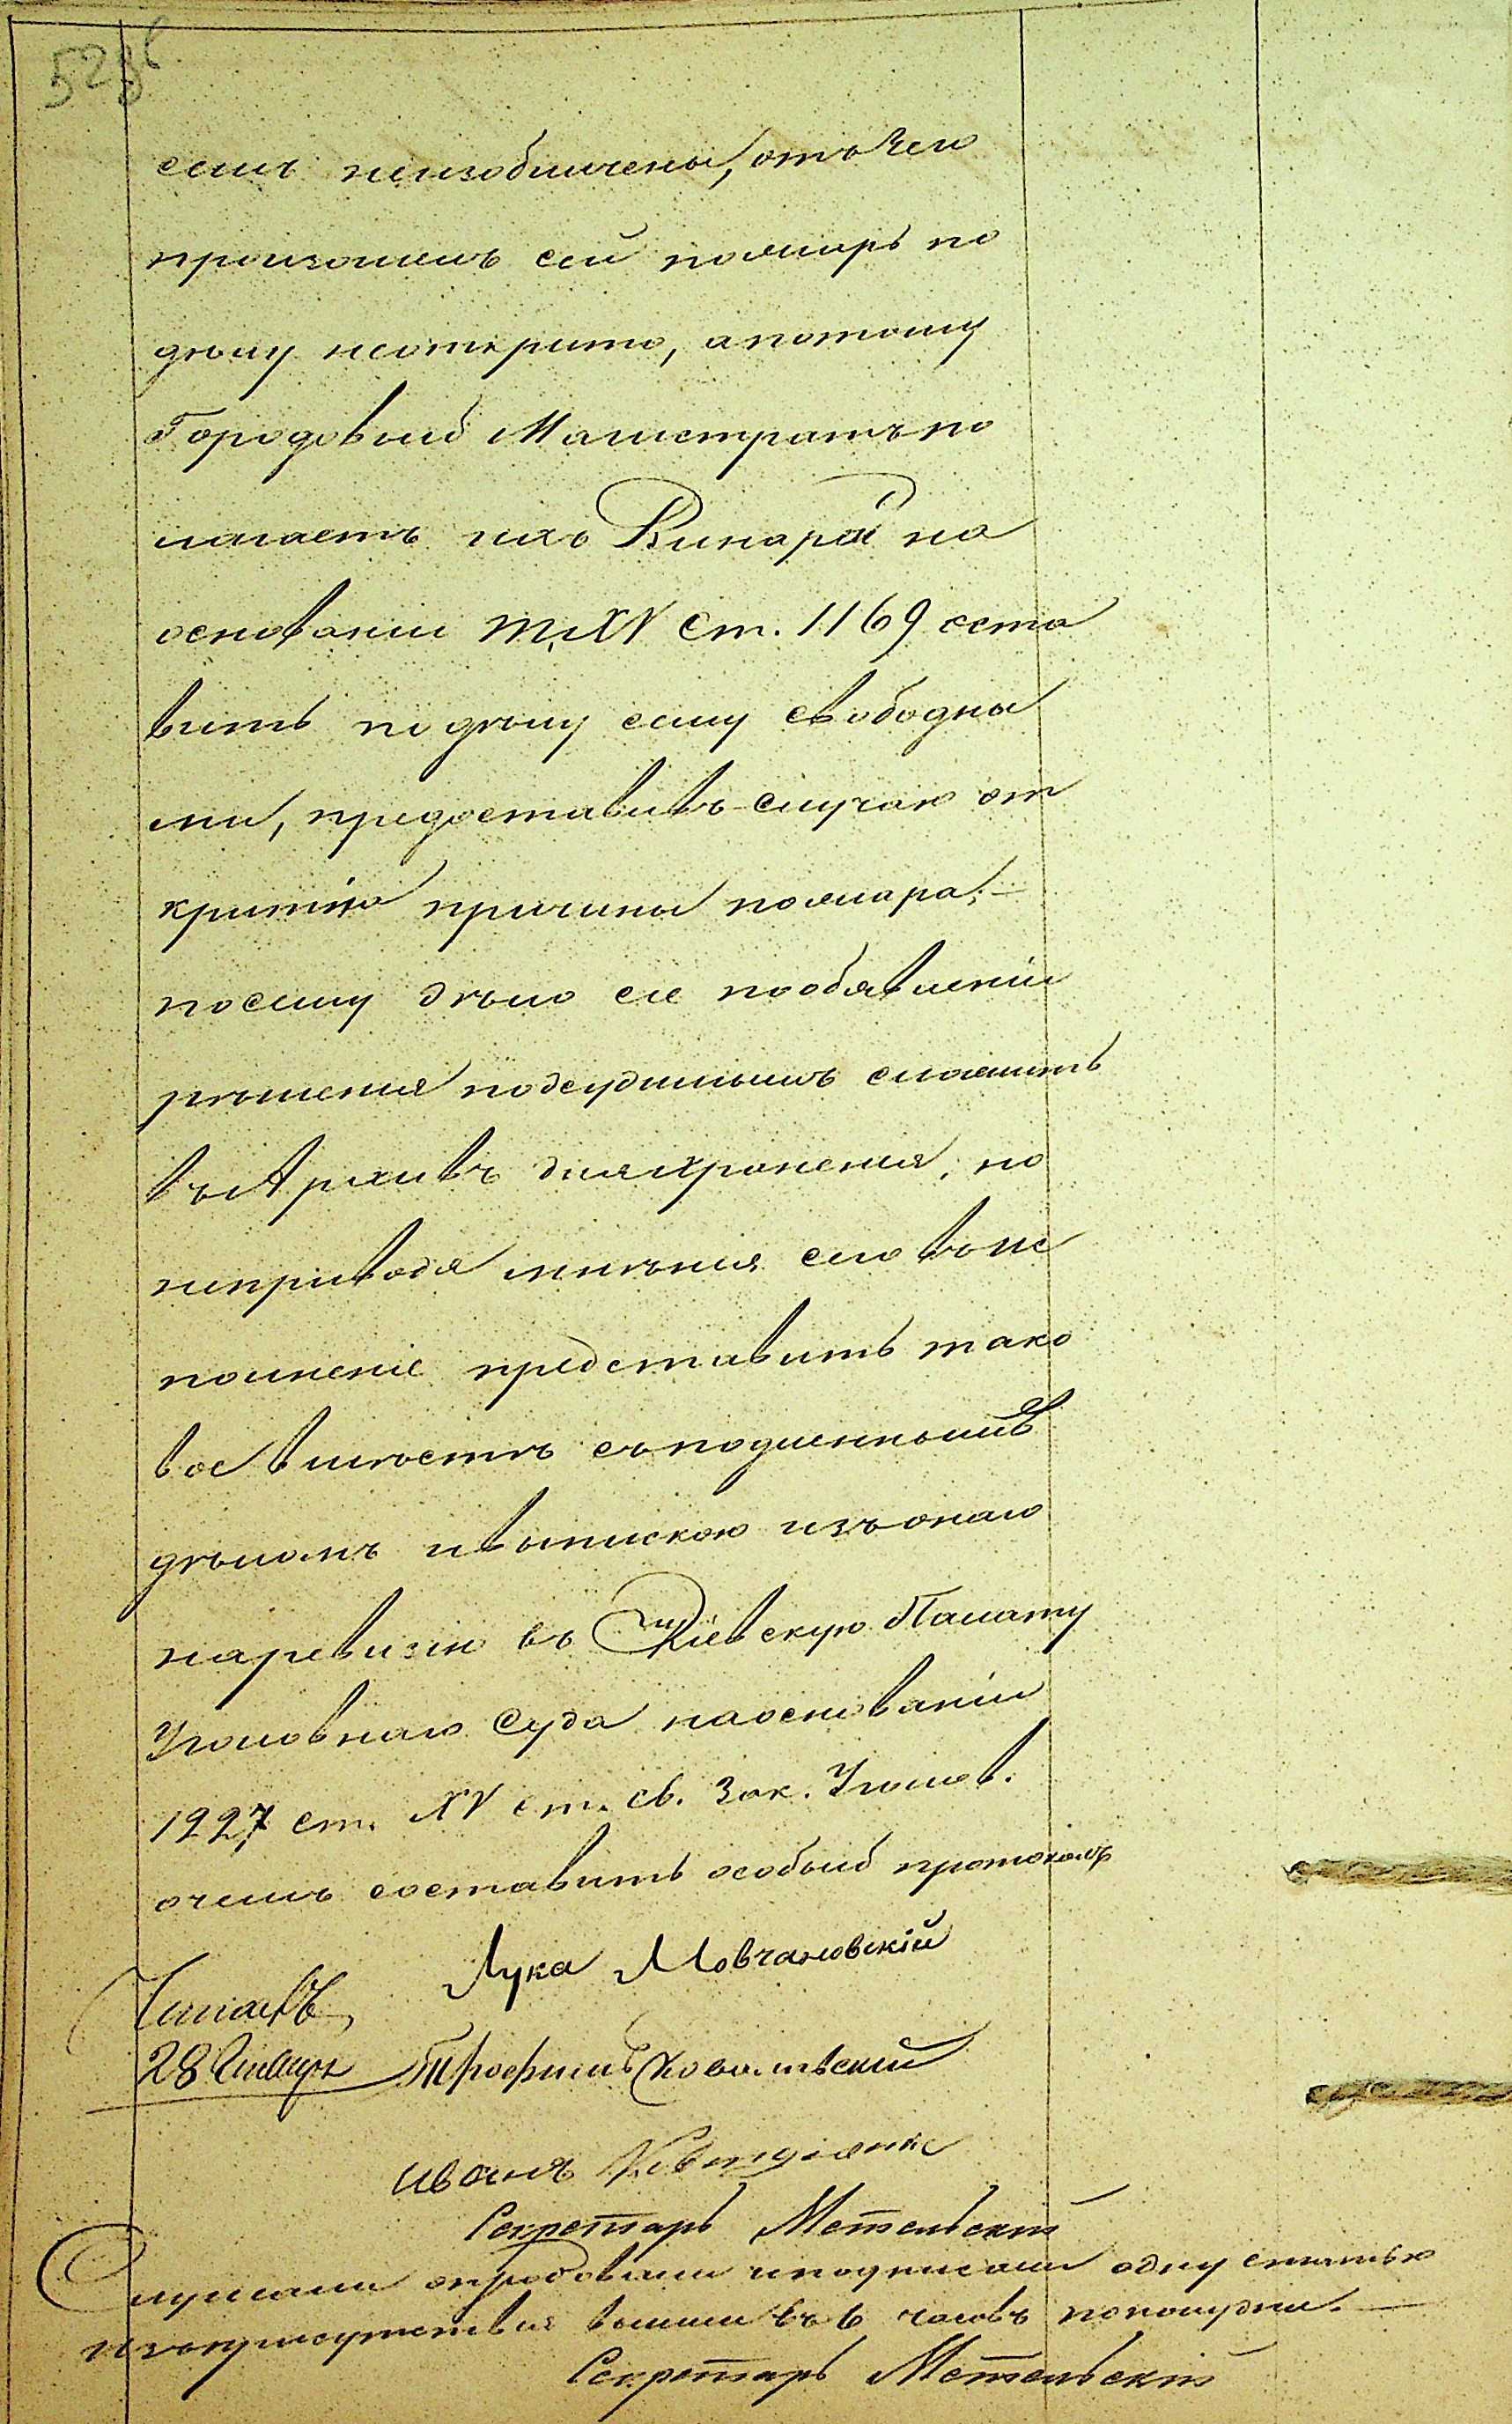 семъ неизобличены, отъ чего
произошелъ сей пожаръ по
делу неоткрито, а потому
Городовый Магистратъ по
лагаетъ ихъ Винарой на
основании Т. XV Ст. 1169 оста
вить по делу сему свободны
ми, предоставивъ случаю от
критию причины пожара. —
посему дѣло сіе по обявленіи
рѣшенія подсудимымъ сложить
въ Архивъ для храненія, но
неприводя мнѣнія сего въ ис
полненіе представить тако
вое вмѣстѣ съ подленнымъ
дѣломъ и выпискою изъ онаго
на ревизію въ Кіевскую Палату
Уголовнаго Суда на основаніи
1227 ст. XV т. Св. Зак. Уголов.
о чемъ составить особый протоколъ
Лука Мовчановскій
Читалъ
28 Января Трофимъ Ковалевский
Иванъ
Секретарь Метельскій
Слушали опробовали и подписали одну статью
изъ присутствія вышли въ 6 часовъ пополудни. —
Секретарь Метельскій